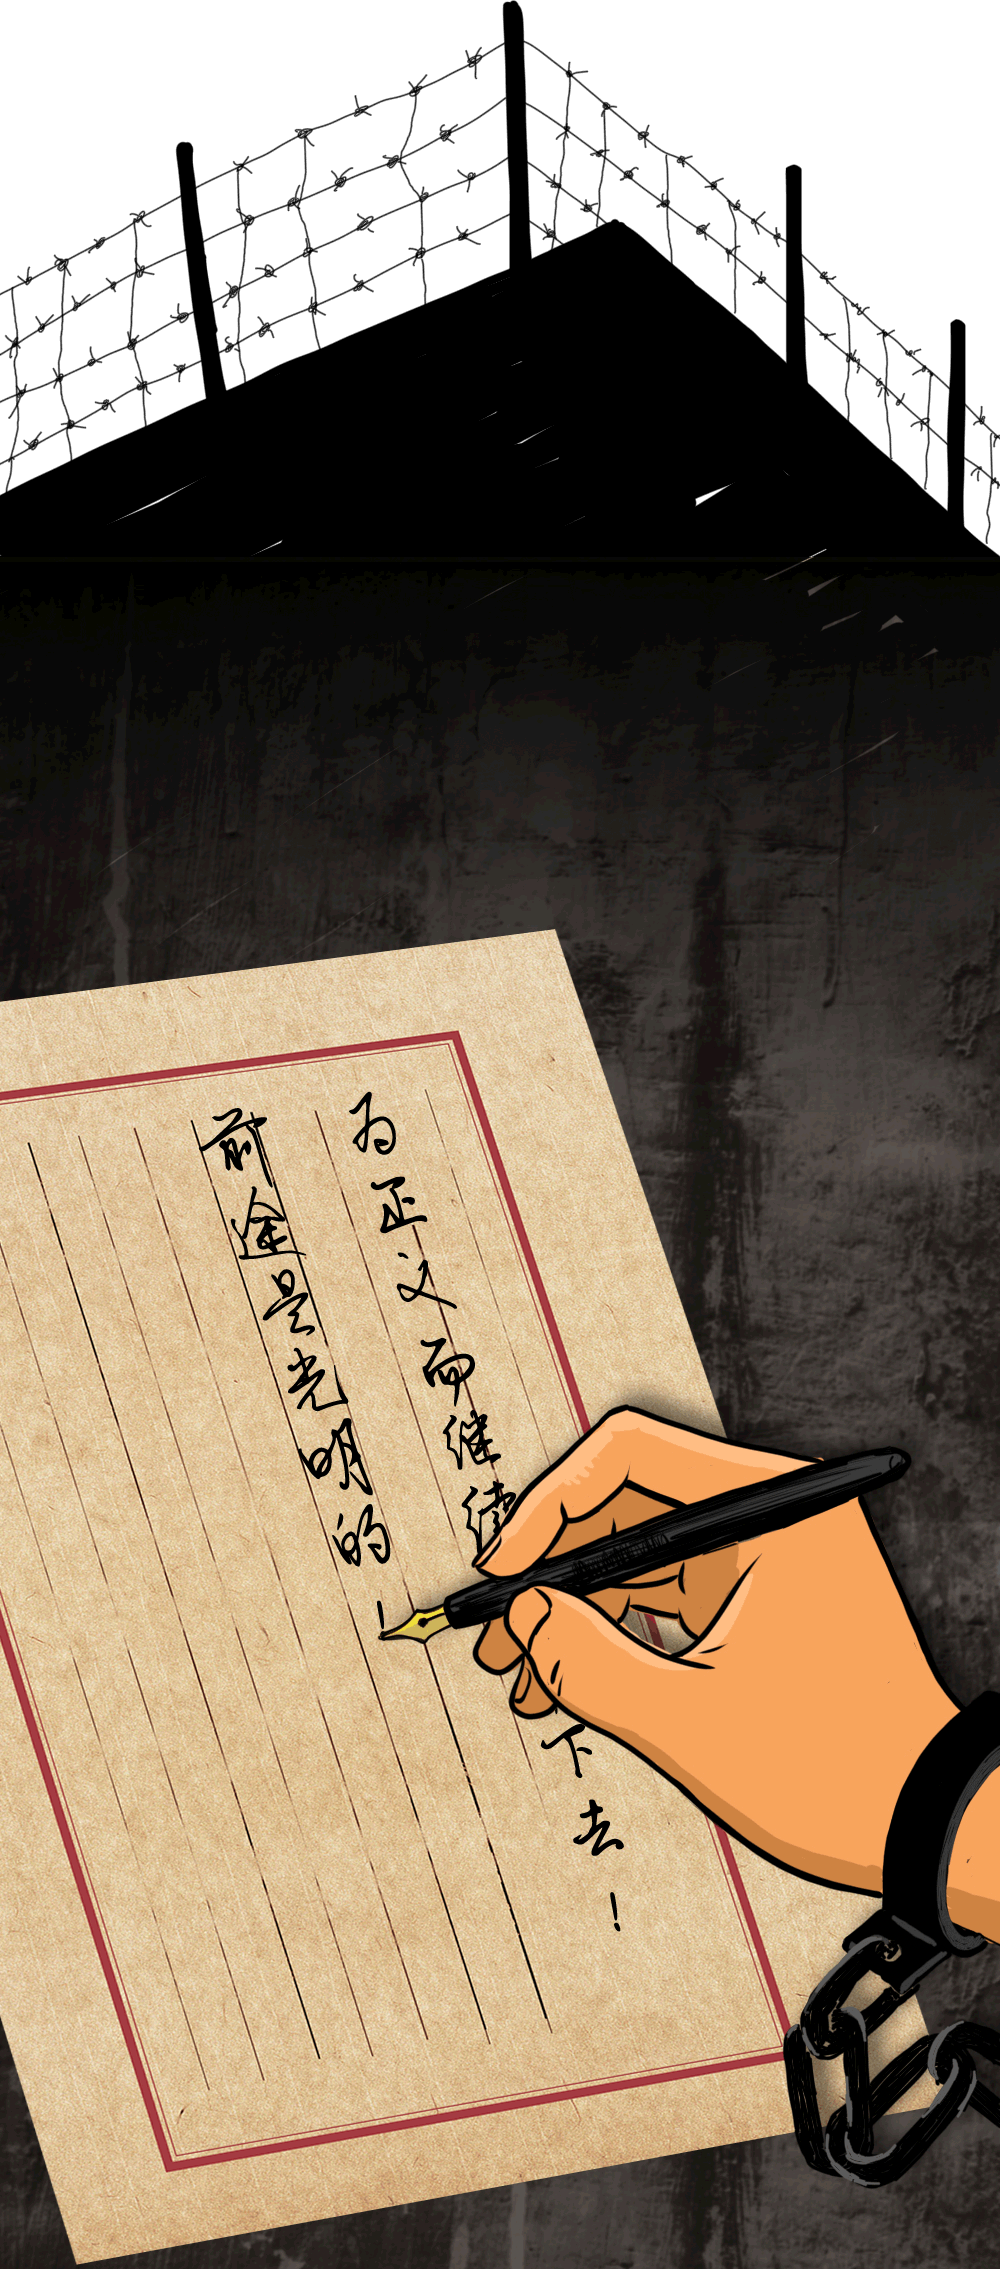 为正义而继续下去！
前途是光明的！